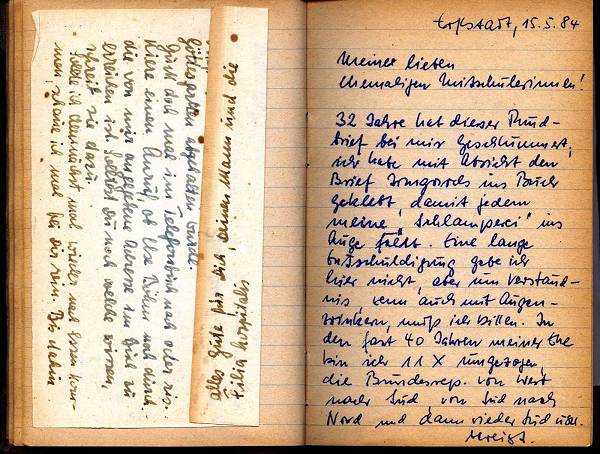 Gottesgarten abgehalten wurde.
Guck doch mal im Telefonbuch nach oder ris-
kiere einen Anruf, ob Else Böhm noch durch
die von mir angegebene Adresse im Brief zu
erreichen ist. Solltest du noch welche wissen,
schreib sie dazu.
Sollte ich demnächst mal wieder nach kom-
men, schaue ich mal bei dir rein. Bis dahin
alles Gute für dich deinen Mann und die
Filia hospitalis
Erftstadt, 15.5.84
Meinen lieben
ehemaligen Mitschülerinnen!
32 Jahre hat dieser Rund-
brief bei mir geschlummert,
ich habe mit Absicht den
Brief Irmgards ins Buch
geklebt, damit jedem
meine „Schlamperei" ins
Auge fällt. Eine lange
Entschuldigung gebe ich
hier nicht, aber um Verständ-
nis, wenn auch mit Augen-
zwinkern, muß ich bitten. In
den fast 40 Jahren meiner Ehe
bin ich 11 X umgezogen,
die Bundesrep. von West
nach Süd von Süd nach
Nord und dann wieder Süd über-
kreizt.